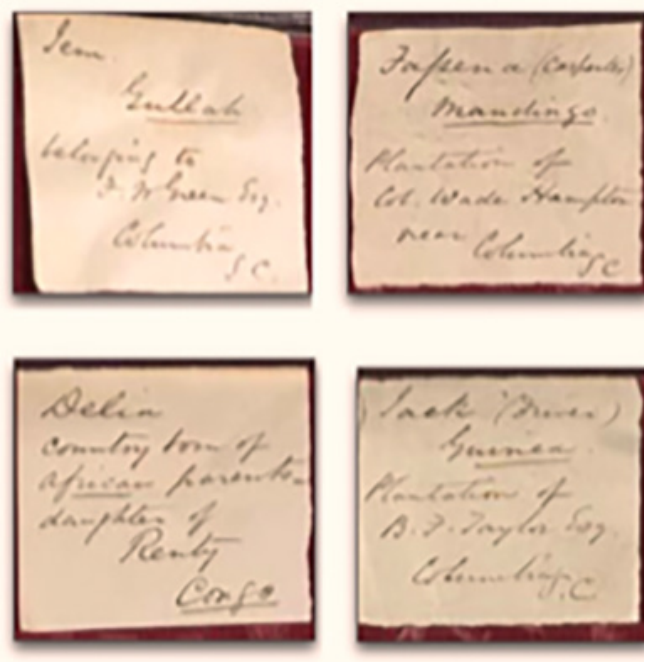 Jem.
Gullah
belonging to
F. W. Green Esq.
Columbia
S. C.
Fassena (Carpenter)
Mandingo.
Plantation of
Col. Wade Hampton
near Columbia
S C
Delia
country born of
african parents
daughter of
Renty
Congo
Jack (Driver)
Guinea.
Plantation of
B. F. Taylor Esq.
Columbia
S. C.